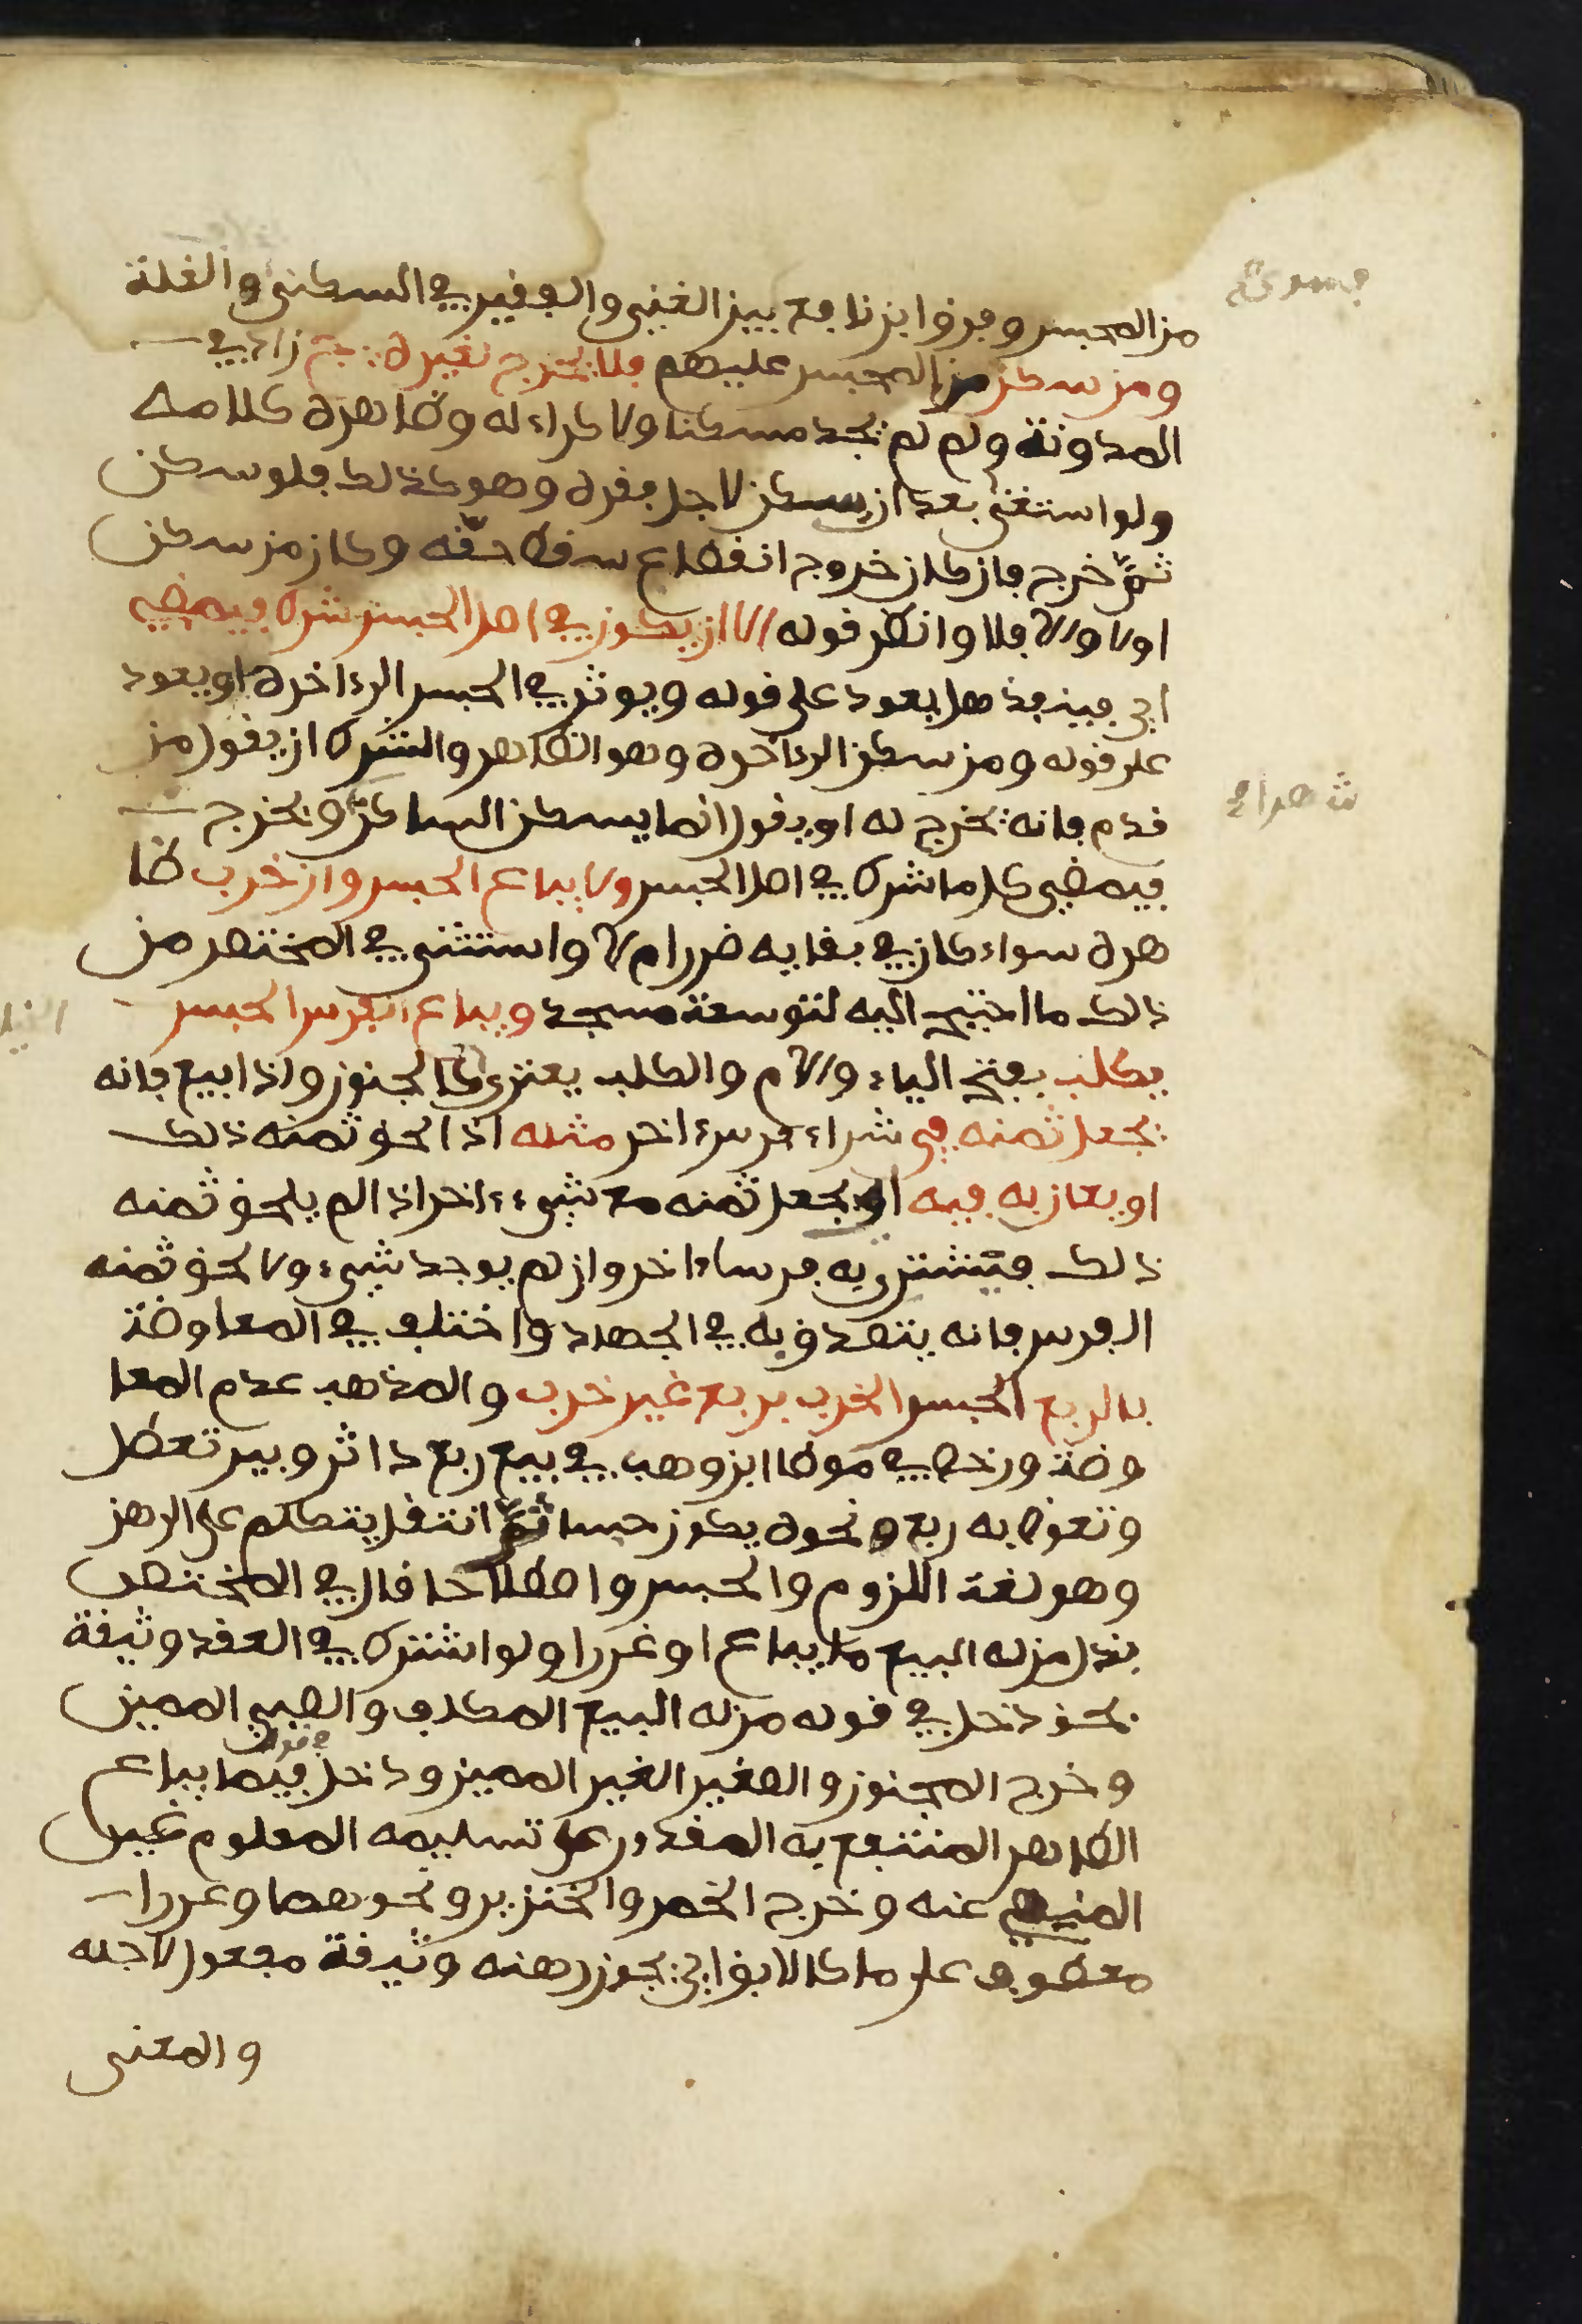 من المحبس وفرق ابن نافع بين الغني والفقير في السكنى والغلة
ومن سكن من المحبس عليهم فلا يخرج لغيره ج زاد في
المدونة ولم لم يجد مسكنا ولا كراء له وظاهره كلامه
ولو استغنى بعد ان يسكن لاجل فقره وهو كذلك فلو سكن
ثم خرج فان كان خروج انقطاع سقط حقه وكان من سكن
اولا والا فلا وانظر قوله الا ان يكون في اصل الحبس شرط فيمضي
اي فينفذ هل يعود على قوله ويوثر في الحبس الى ءاخره او يعود
على قوله ومن سكن الى ءاخره وهو الظاهر والشرط ان يقول من
قدم فانه يخرج له او يقول انما يسكن الساكن ويخرج
فيمضى كل ما شرط في اصل الحبس ولا يباع الحبس وان خرب ظا
هره سواء كان في بقايه ضرر ام لا واستثنى في المختصر من
ذلك ما احتيج اليه لتوسعة مسجد ويباع الفرس الحبس
يكلب بفتح الياء والام والكلب يعتري كالجنون واذا بيع فانه
يجعل ثمنه في شراء فرس ءاخر مثله اذا لحق ثمنه ذلك
او يعان به فيه او يجعل ثمنه مع شيء ءاخر اذا لم يلحق ثمنه
ذلك فيشترى به فرسا ءاخر وان لم يوجد شيء ولا لحق ثمنه
الفرس فانه يتصدق به في الجهاد واختلف في المعاوضة
بالربع الحبس الخرب بربع غير خرب والمذهب عدم المعا
وضة ورخص في موطا ابن وهب في بيع ربع داثر وبير تعطل
وتعوض به ربع ونحوه يكون حبسا ثم انتقل يتكلم على الرهن
وهو لغة اللزوم والحبس واصطلاحا قال في المختصر
بذل من له البيع ما يباع او غررا ولو اشترط في العقد وثيقة
بحق دخل في قوله من له البيع المكلف والصبي المميز
وخرج المجنون والصغير الغير المميز ودخل في قوله فيما يباع
الطاهر المنتفع به المقدور على تسليمه المعلوم غير
المنهي عنه وخرج الخمر والخنزير ونحوهما وغررا
معطوف على ما كالابق اي يجوز رهنه وثيقة مفعول لاجله
والمعنى